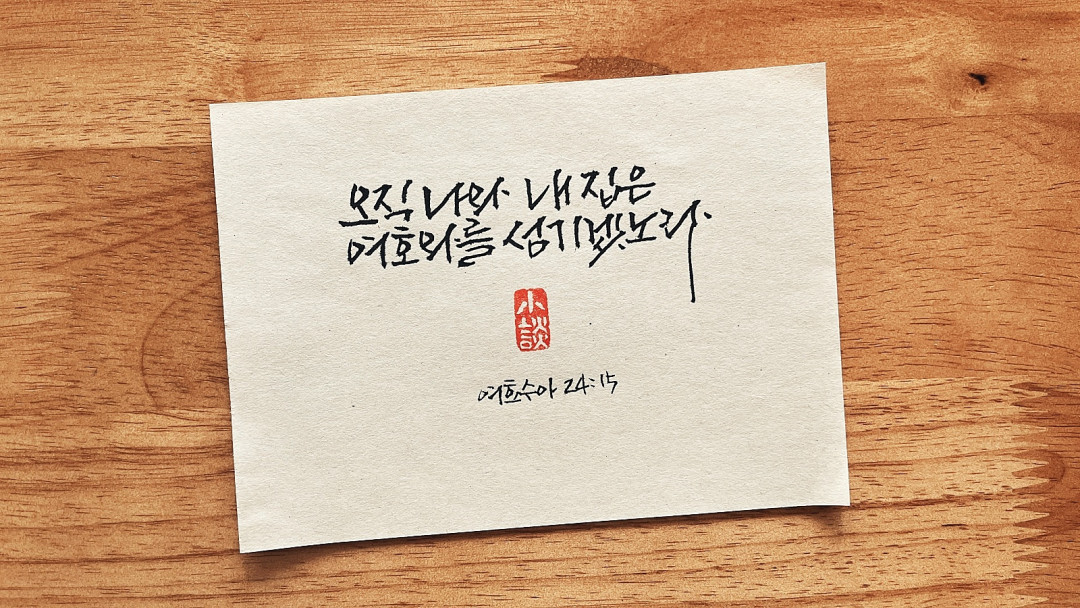 오직 나와 내 집은
여호와를 섬기겠노라
小談
여호수아 24:15